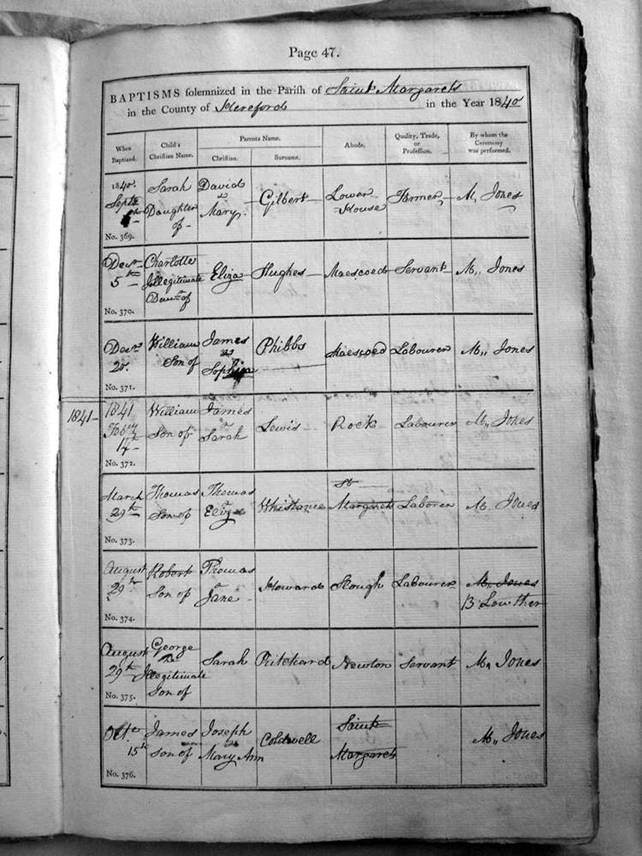 Page 47.
BAPTISMS solemnized in the Parish of Saint Margarets
in the County of Hereford in the Year 1840
When Baptized. Child's Christian Name. Parents Name. Christian. Surname. Abode. Quality, Trade, or Profession. By whom the Ceremony was performed.
1840. Sarah David
Septr Daughter & Gilbert Lower House Farmer M. Jones
of Mary.
No. 369.
Decr 5th Charlotte Illegitimate Daur of Eliza Hughes Maescoed Servant M. Jones
No. 370.
Decr 20. William Son of James & Sophia Phibbs Maescoed Labourer M. Jones
No. 371.
1841 1841 Feby 14th William Son of James & Sarah Lewis Rock Labourer M. Jones
No. 372.
March 29th Thomas Son of Thomas & Eliza Whistance St Margarets Laborer M. Jones
No. 373.
August 29th Robert Son of Thomas & Jane Howard Slough Labourer M. Jones
B Lowther
No. 374.
August 29th George The Illegitimate Son of Sarah Pritchard Newton Servant M. Jones
No. 375.
Octr 15th James Son of Joseph & Mary Ann Coldwell Saint Margarets M. Jones
No. 376.